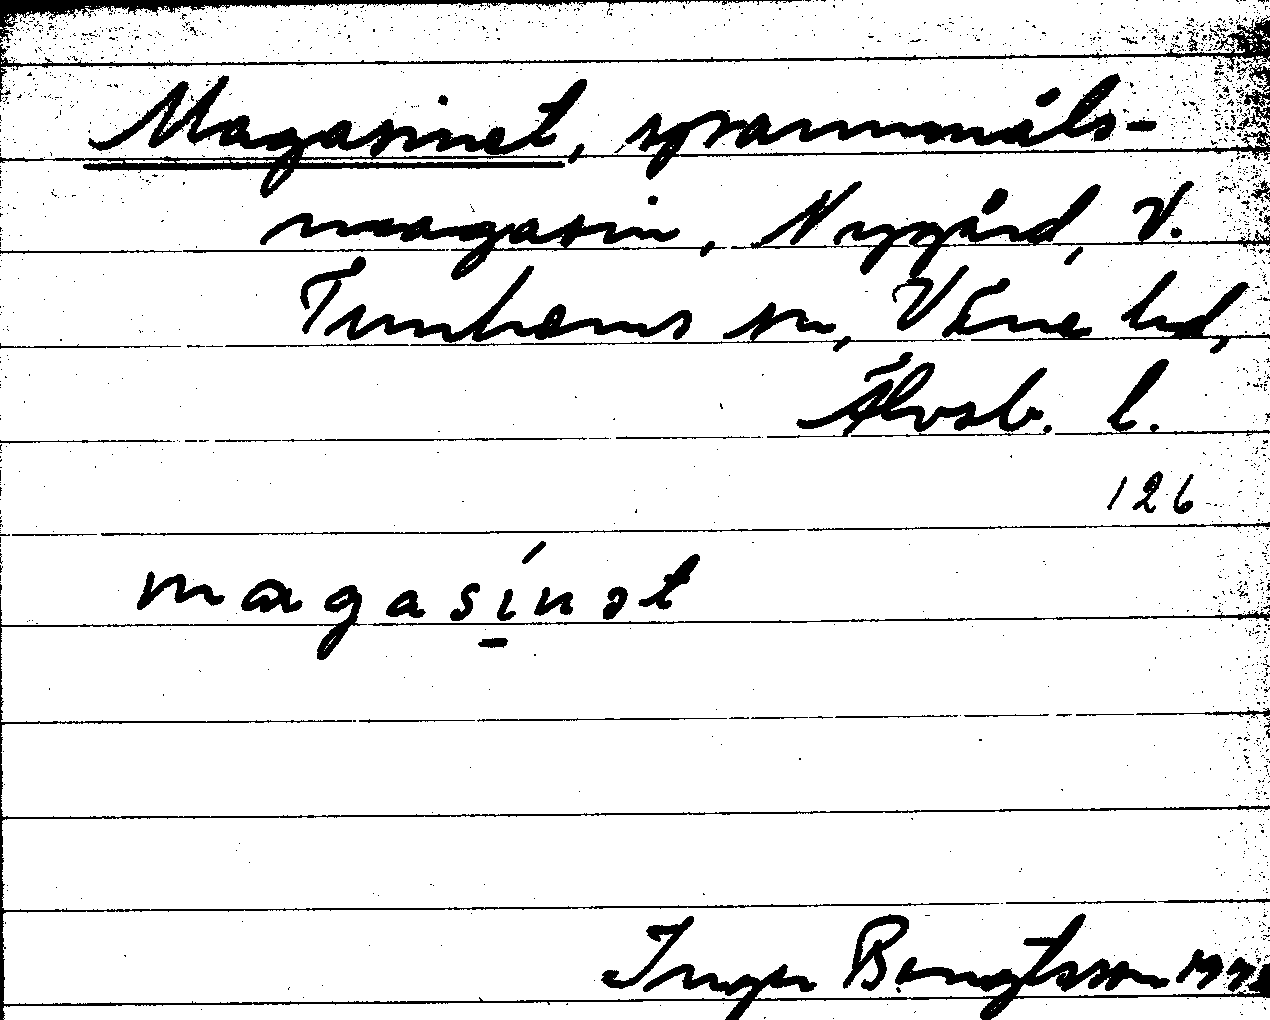 Magasinet, spannmåls-
magasin, Nygård, V.
Tunhems sn, Väne hd,
Älvsb. l.
126
magasínət
Inger Bengtsson